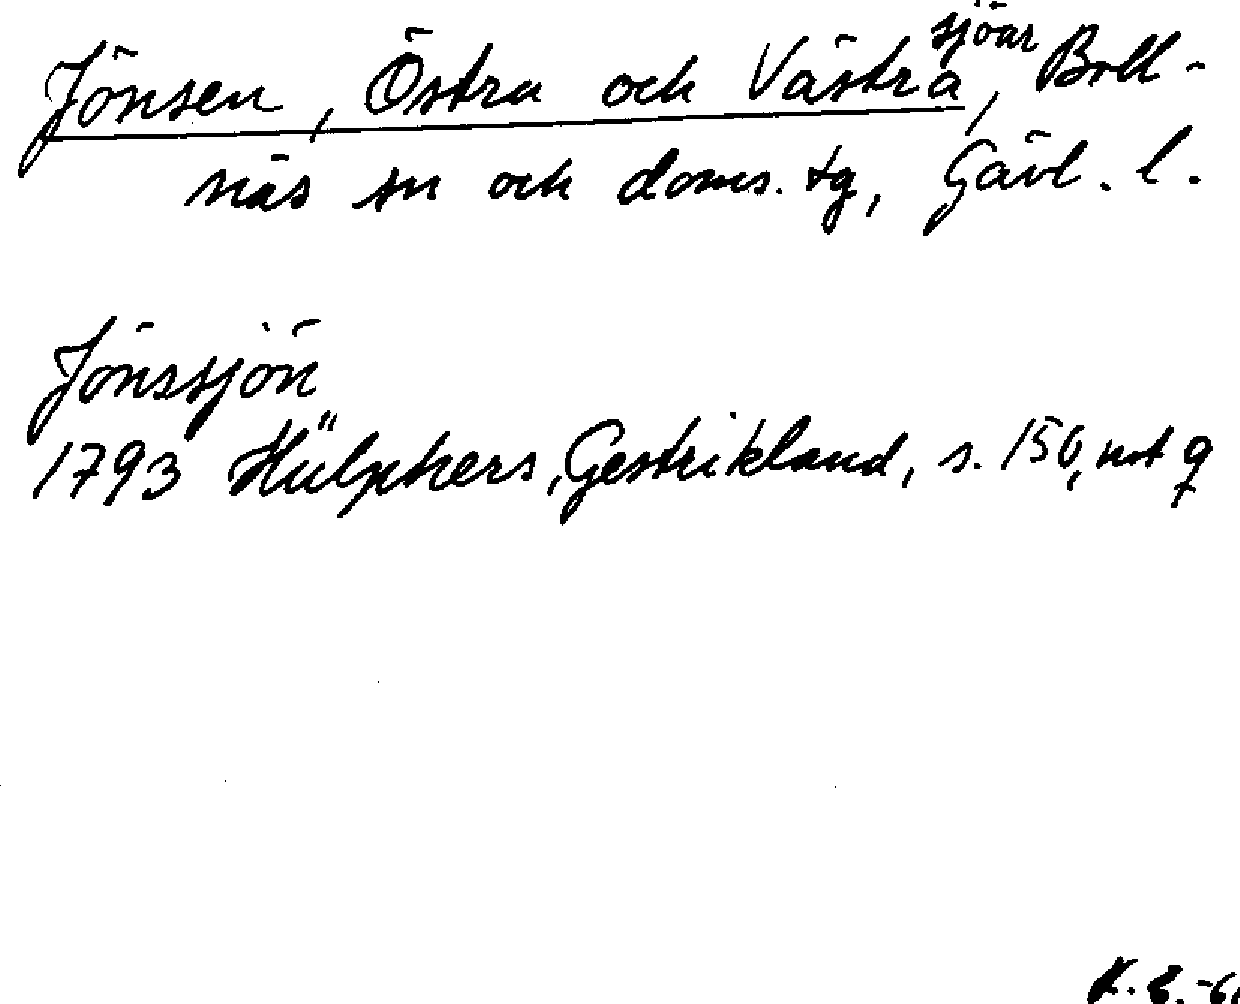 Jönsen, Östra och Västra, sjöar Boll-
näs sn och doms. tg, Gävl. l.
Jönssjön
1793 Hülphers, Gestrikland, s. 150, not q